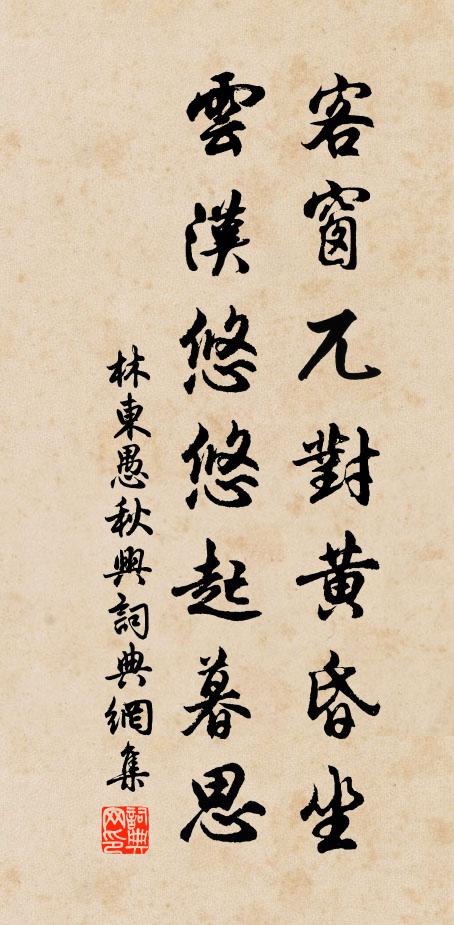 客窗兀對黄昏坐
雲漢悠悠起暮思
林東愚秋興詞典網集
詞典网印